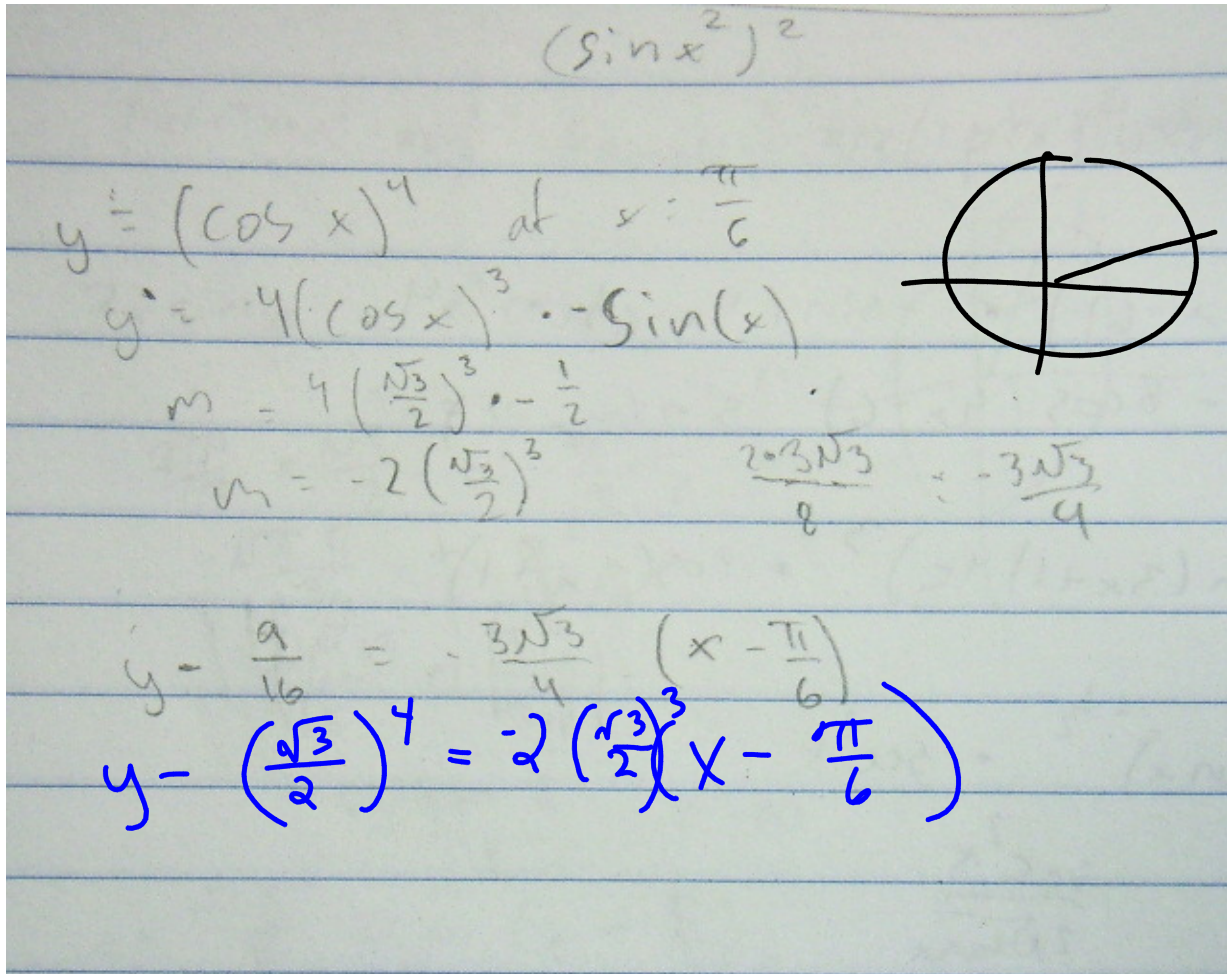 (sin x²)²
y = (cos x)⁴ at x = π/6
y' = 4(cos x)³ · -sin(x)
m = 4(√3/2)³ · -1/2
m = -2(√3/2)³ 2·3√3/8 = -3√3/4
y - 9/16 = -3√3/4 (x - π/6)
y - (√3/2)⁴ = -2(√3/2)³(x - π/6)